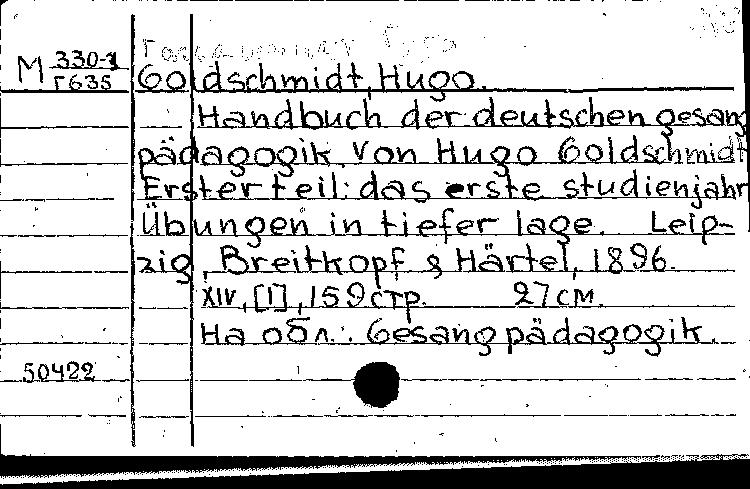 M 330-1
Г635
Goldschmidt, Hugo.
Handbuch der deutschen gesang
pädagogik. Von Hugo Goldschmidt
Erster teil: das erste studienjahr
Übungen in tiefer lage. Leip-
zig, Breitkopf & Härtel, 1896.
XIV, [1], 159 стр. 27 см.
На обл.: Gesangpädagogik.
50422